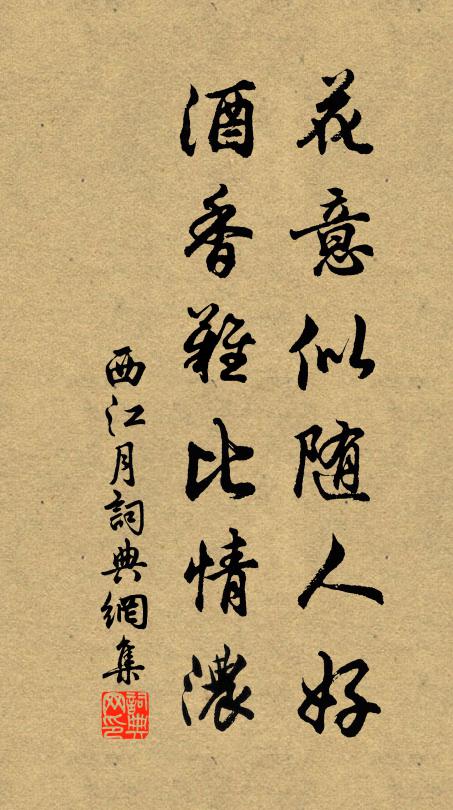 花意似随人好
酒香難比情濃
西江月詞典網集
詞典网印